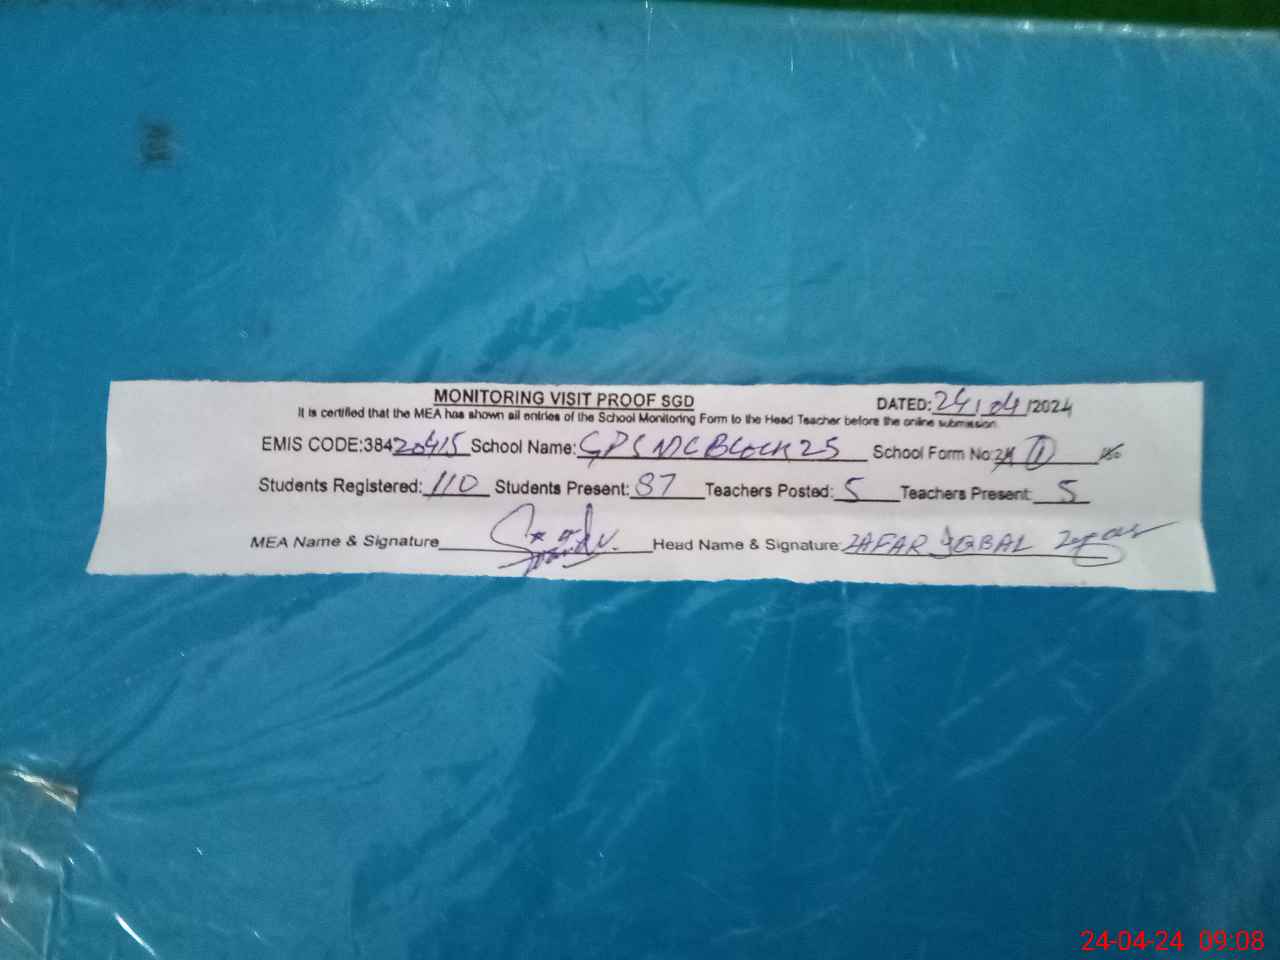 MONITORING VISIT PROOF SGD
DATED: 24/04/2024
It is certified that the MEA has shown all entries of the School Monitoring Form to the Head Teacher before the online submission.
EMIS CODE:38420415 School Name: GPS MC Block 25 School Form No:
Students Registered: 110 Students Present: 87 Teachers Posted: 5 Teachers Present: 5
MEA Name & Signature Head Name & Signature: ZAFAR IQBAL Zafar
24-04-24 09:08